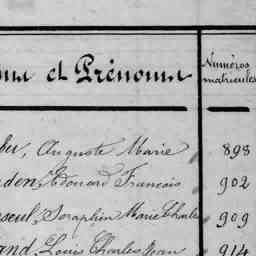 et Prénoms
Numéros
matricules
Auguste Marie 898
Edouard Francois 902
Seraphin Marie Charles 909
Louis Charles Jean 914